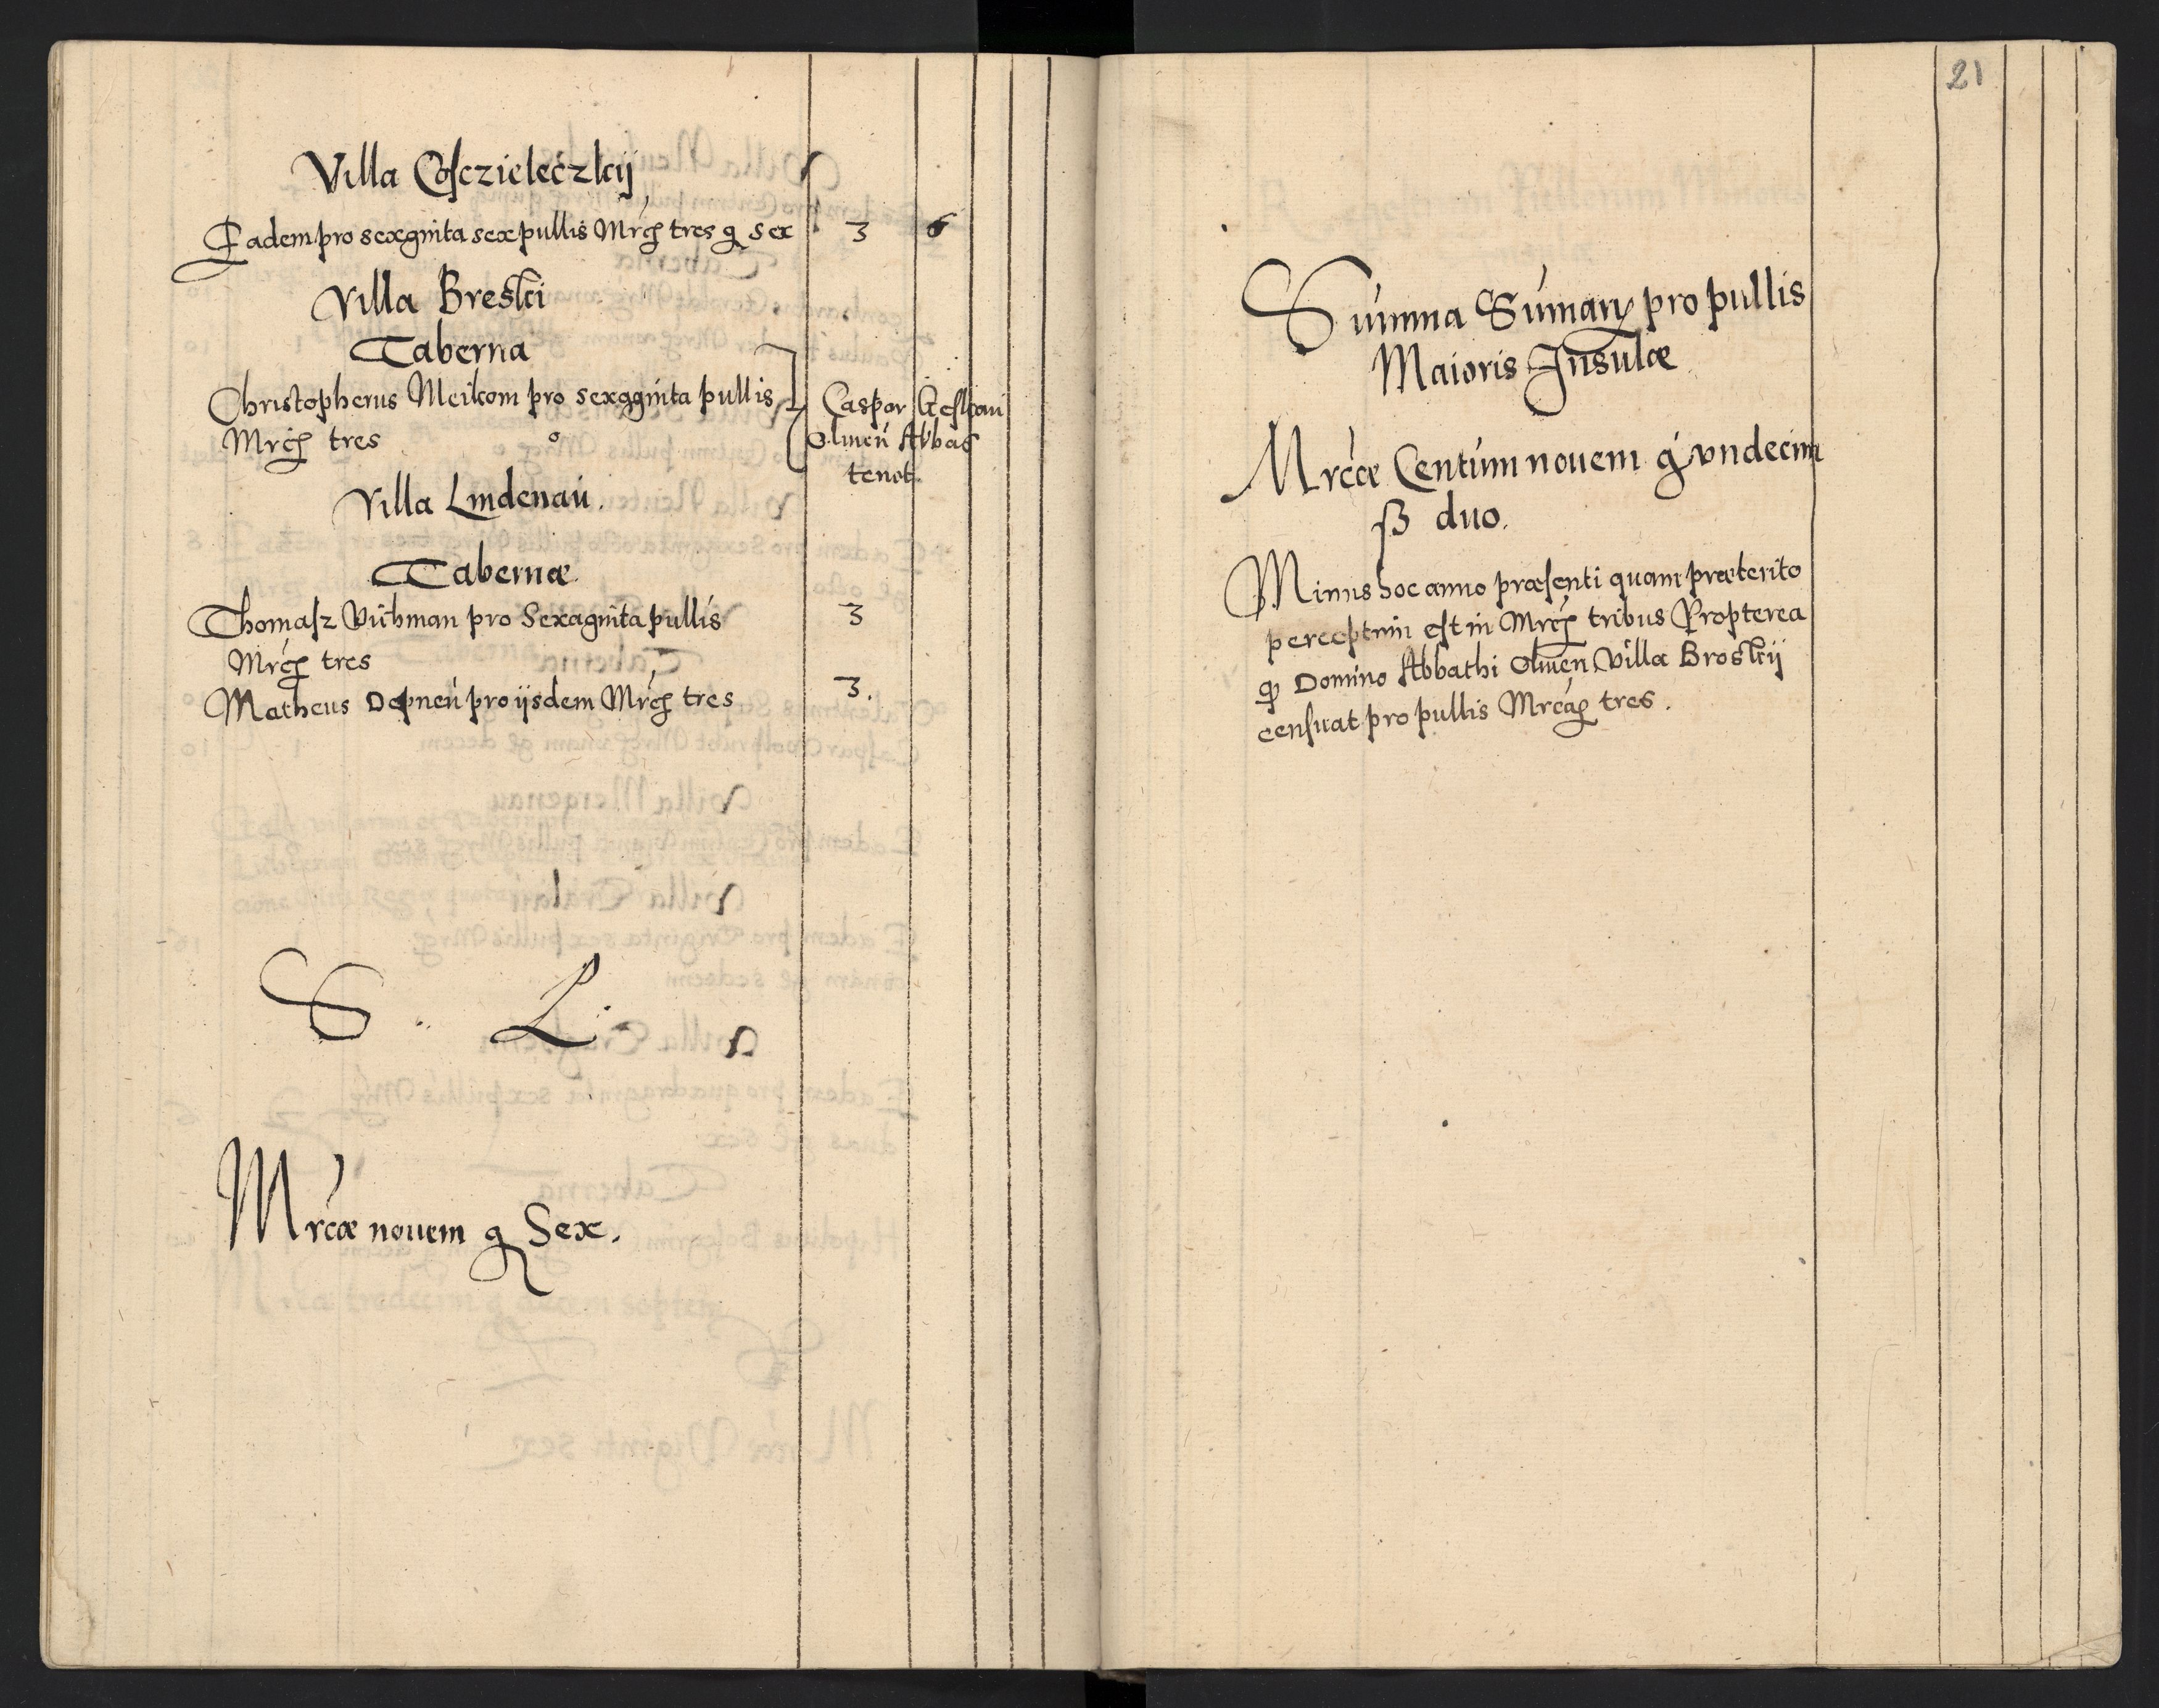 Villa Cosczieleczkij
Eadem pro sexginta sex pullis Mrcs tres g sex 3 6
Villa Breski
Taberna
Christopherus Meikom pro sexagginta pullis
Mrcs tres o
Caspar
Olmen Abbas
tenet
Villa Lindenau.
Tabernæ
Thomasz pro Sexaginta pullis 3
Mrcs tres
Matheus Depneu pro ijsdem Mrcs tres 3.
S. L.
Mrcæ nouem g Sex.
21
Summa Sumary pro pullis
Maioris Insulæ
Mrcæ Centum nouem g vndecim
ß duo.
Minus hoc anno præsenti quam præterito
perceptum est in Mrcs tribus Propterea
qp Domino Abbathi Olmen Villa Broskij
censuat pro pullis Mrcas tres.